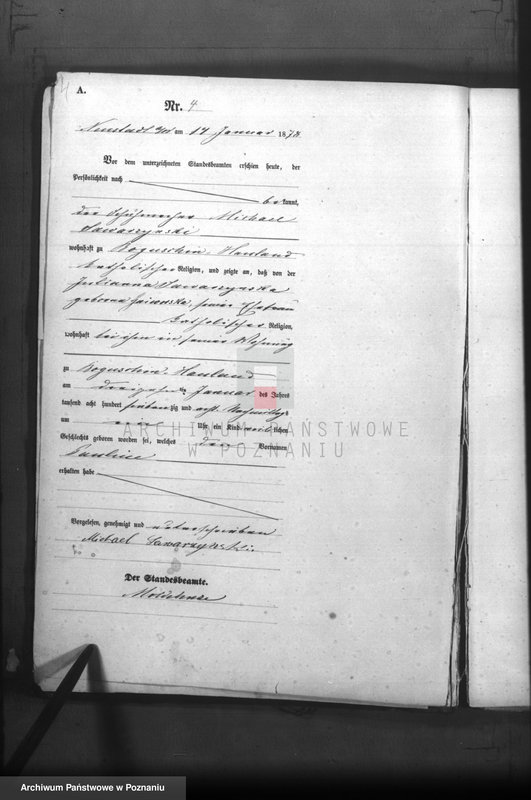 A.
Nr. 4
Neustadt am 14 Januar 1878
Vor dem unterzeichneten Standesbeamten erschien heute, der
Persönlichkeit nach
bekannt,
der Schuhmacher Michael
wohnhaft zu Boguschin Hauland
katholischer Religion, und zeigte an, daß von der
Julianna
geborne seiner Ehefrau
katholischer Religion,
wohnhaft bei ihm in seiner Wohnung
zu Boguschin Hauland
am dreizehnten Januar des Jahres
tausend acht hundert siebenzig und acht Nachmittags
um Uhr ein Kind weiblichen
Geschlechts geboren worden sei, welches den Vornamen
Pauline
erhalten habe
Vorgelesen, genehmigt und unterschrieben
Michael
Der Standesbeamte.
ARCHIWUM PAŃSTWOWE
W POZNANIU
Archiwum Państwowe w Poznaniu